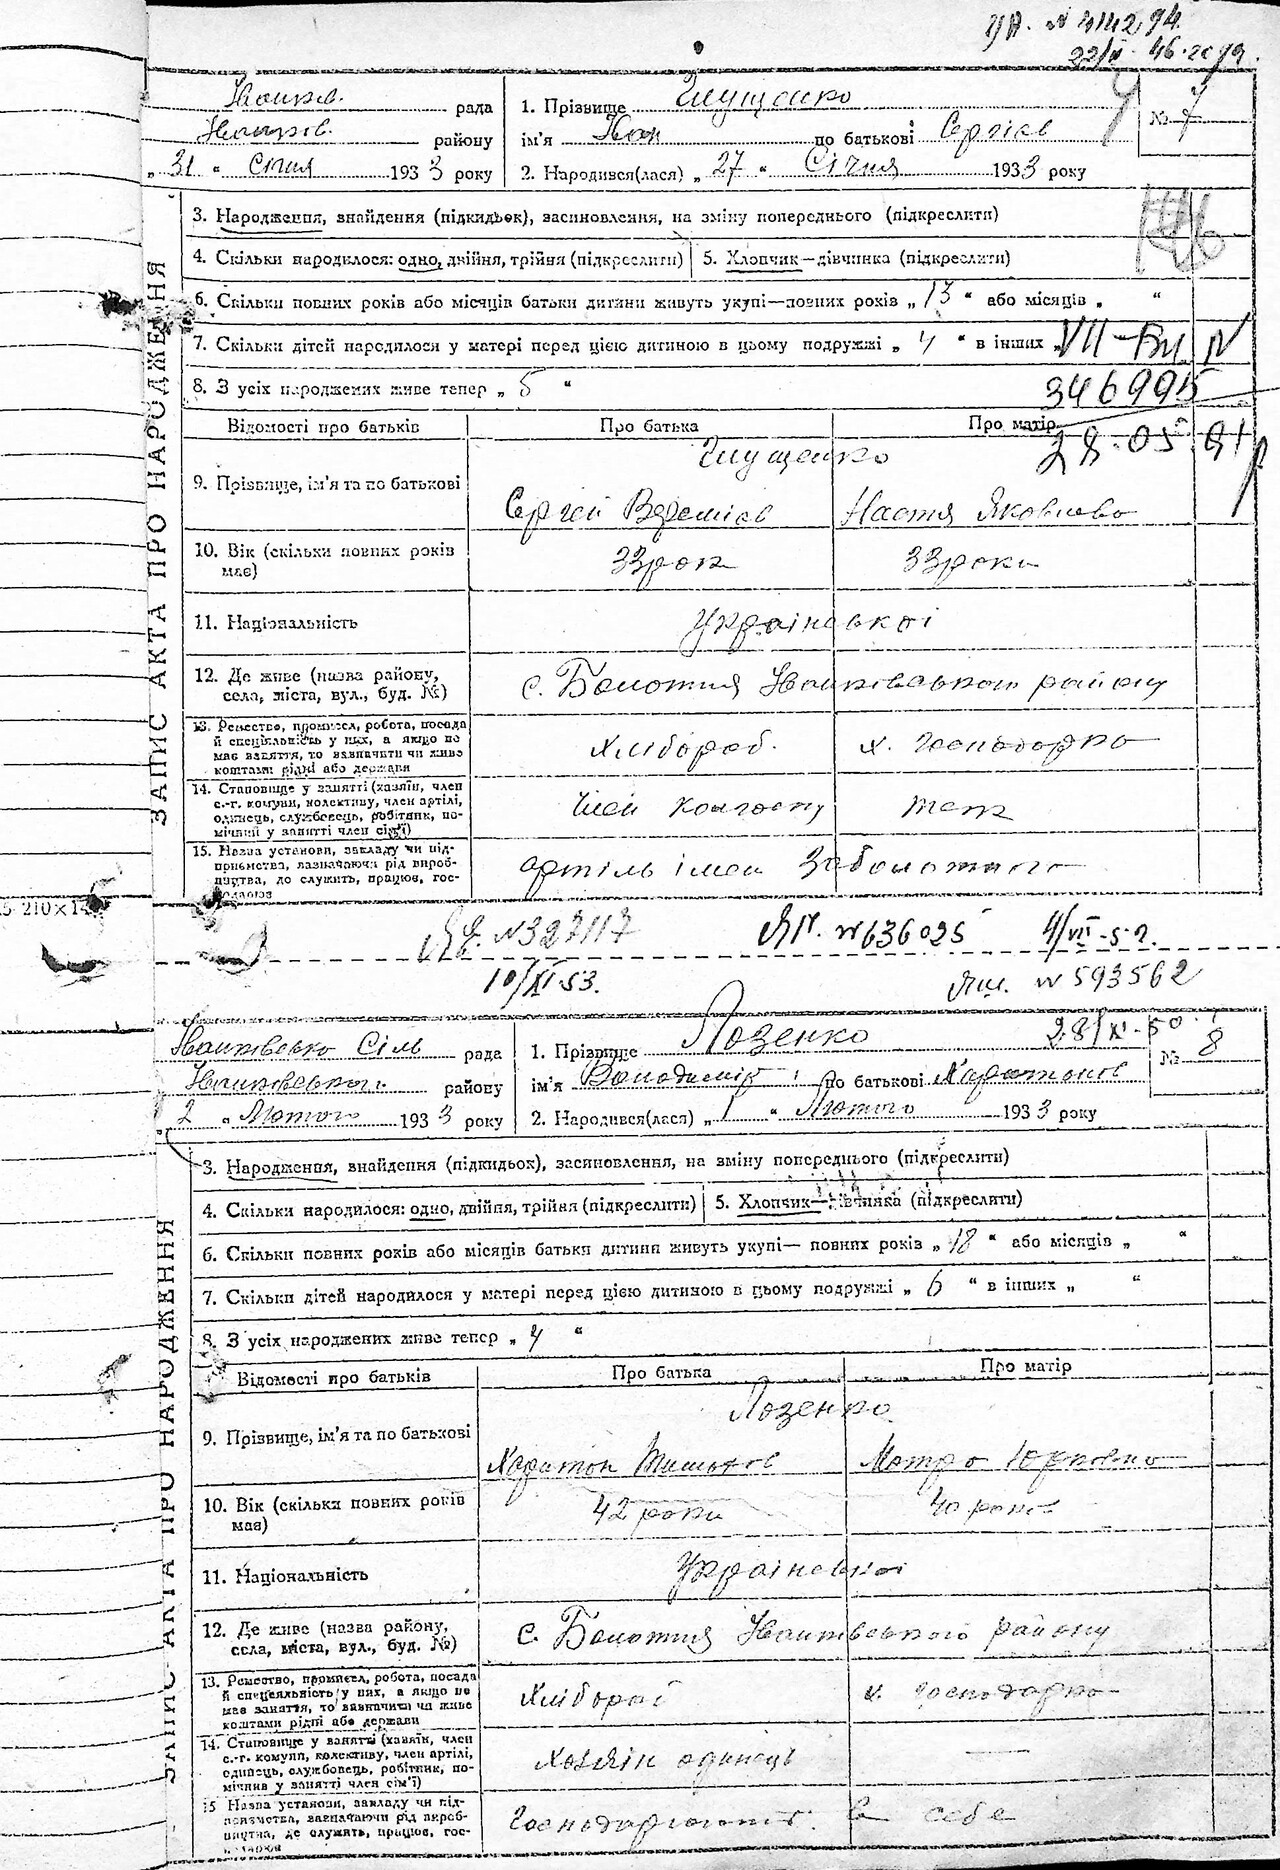 22/II 46 року
Іванків. рада
Іванків. району
„ 31 “ Січня 1933 року
1. Прізвище Глущенко
ім'я Іван по батькові Сергієв
2. Народився(лася) „ 27 “ Січня 1933 року
№ 7
3. Народження, знайдення (підкидьок), засиновлення, на зміну попереднього (підкреслити)
4. Скільки народилося: одно, двійня, трійня (підкреслити)
5. Хлопчик—дівчинка (підкреслити)
6. Скільки повних років або місяців батьки дитини живуть укупі—повних років „ 13 “ або місяців „ “
7. Скільки дітей народилося у матері перед цією дитиною в цьому подружжі „ 4 “ в інших „
VII - БИ N
8. З усіх народжених живе тепер „ 5 “
346995
28.05.81
Відомості про батьків
Про батька
Про матір
Глущенко
9. Прізвище, ім'я та по батькові
Сергей
Настя Яковлева
10. Вік (скільки повних років має)
33 рок
33 роки
11. Національність
Української
12. Де живе (назва району, села, міста, вул., буд. №)
с. Болотня Іванківського району
13. Ремество, промисел, робота, посада й спеціяльність у них, а якщо не має заняття, то зазначити чи живе коштами рідні або держави
Хлібороб.
х. господарка
14. Становище у занятті (хазяїн, член с.-г. комуни, колективу, член артілі, одинець, службовець, робітник, помічний у занятті член сім'ї)
Член колгоспу
теж
15. Назва установи, закладу чи підприємства, зазначаючи рід виробництва, де служить, працює, господарює
артіль імен Заболотного
ЗАПИС АКТА ПРО НАРОДЖЕННЯ
№ 327117
10/XI 53.
№ 636025
4/VII-52.
№ 593562
28/XI-50
Іванківсько Сіль рада
Іванківського району
„ 2 “ Лютого 1933 року
1. Прізвище Лозенко
ім'я Володимір по батькові Харитонов
2. Народився(лася) „ 1 “ Лютого 1933 року
№ 8
3. Народження, знайдення (підкидьок), засиновлення, на зміну попереднього (підкреслити)
4. Скільки народилося: одно, двійня, трійня (підкреслити)
5. Хлопчик—дівчинка (підкреслити)
6. Скільки повних років або місяців батьки дитини живуть укупі— повних років „ 18 “ або місяців „ “
7. Скільки дітей народилося у матері перед цією дитиною в цьому подружжі „ 6 “ в інших „ “
8. З усіх народжених живе тепер „ 4 “
Відомості про батьків
Про батька
Про матір
Лозенко
9. Прізвище, ім'я та по батькові
Харитон
Мотря Юрковна
10. Вік (скільки повних років має)
42 роки
40 років
11. Національність
Української
12. Де живе (назва району, села, міста, вул., буд. №)
с. Болотня Іванківського району
13. Ремество, промисел, робота, посада й спеціяльність у них, а якщо не має заняття, то зазначити чи живе коштами рідні або держави
Хлібороб
х. господарко
14. Становище у занятті (хазяїн, член с.-г. комуни, колективу, член артілі, одинець, службовець, робітник, помічник у занятті член сім'ї)
Хозяїн одинець
15 Назва установи, закладу чи підприємства, зазначаючи рід виробництва, де служить, працює, господарює
Господарюють в себе
ЗАПИС АКТА ПРО НАРОДЖЕННЯ